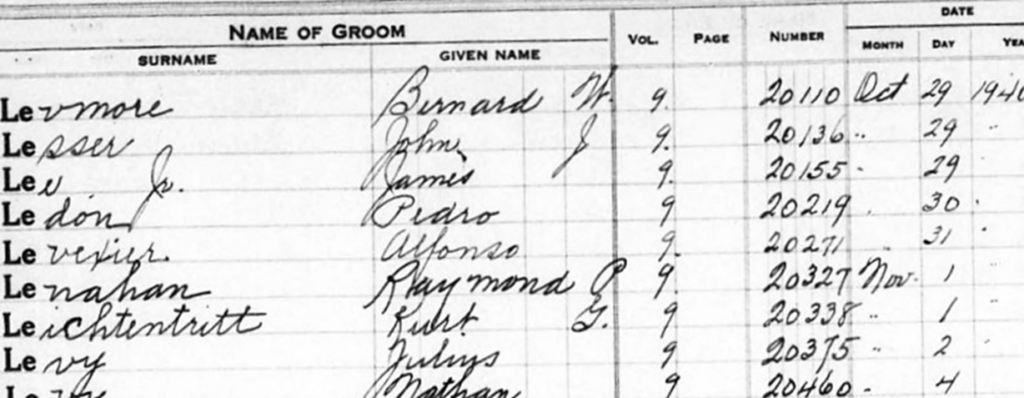 NAME OF GROOM VOL. PAGE NUMBER DATE
SURNAME GIVEN NAME MONTH DAY YEA
Levmore Bernard W. 9. 20110 Oct 29 194
Lesser John J 9. 20136 " 29 "
Lee Jr. James 9. 20155 " 29
Ledon Pedro 9 20219 . 30 "
Levexier. Alfonso 9. 20271 " 31 "
Lenahan Raymond P 9. 20327 Nov. 1 "
Leichtentritt Kurt G. 9 20338 " 1 "
Levy Julius 9 20375 " 2 "
Le Nathan 9 20460 " 4